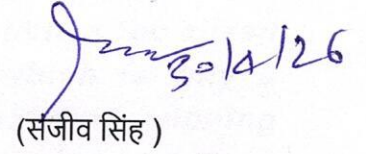 30/4/26
(संजीव सिंह )